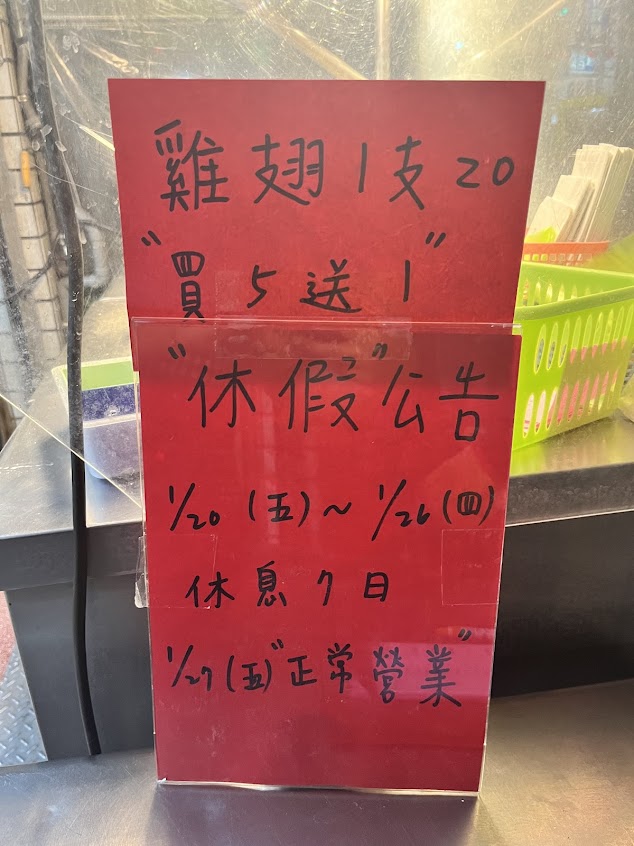 雞翅1支20
"買5送1"
"休假"公告
1/20(五)～1/26(四)
休息7日
1/27(五)"正常營業"